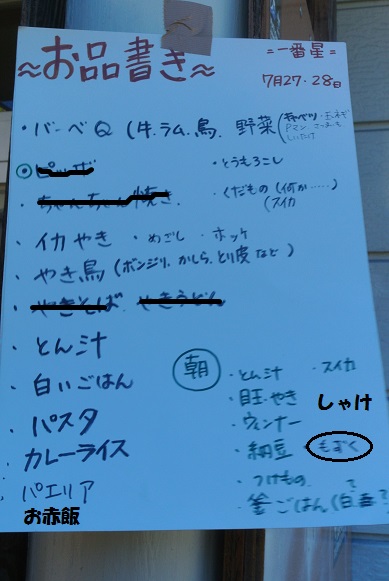 ～お品書き～
＝一番星＝
7月27・28日
・バーベQ（牛.ラム.鳥. 野菜（キャベツ・玉ネギ
Pマン
しいたけ
ピッザ
・とうもろこし
・ちゃんちゃん焼き
・くだもの（何か……）
（スイカ
・イカやき ・めざし ・ホッケ
・やき鳥（ボンジリ.かしら.とり皮など）
・やきそば やきうどん
・とん汁
・白いごはん
・パスタ
カレーライス
パエリア
お赤飯
朝
・とん汁 ・スイカ
・目玉やき
しゃけ
・ウィンナー
・納豆 ・もずく
・つけもの
・釜ごはん（白